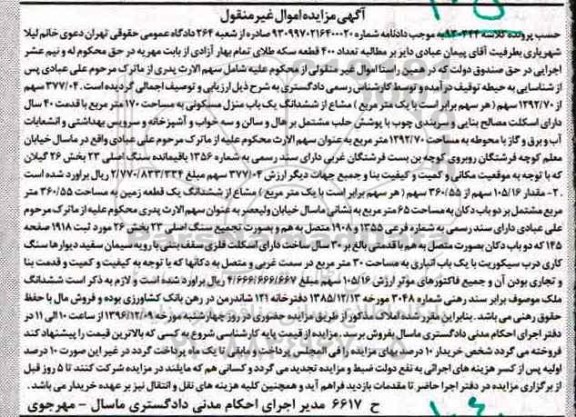 آگهی مزایده اموال غیر منقول
حسب پرونده کلاسه ۹۳۰۳۴۴ به موجب دادنامه شماره ۹۳۰۹۹۷۰۲۱۶۴۰۰۰۲۰ صادره از شعبه ۲۶۴ دادگاه عمومی حقوقی تهران دعوی خانم لیلا
شهریاری بطرفیت آقای پیمان عبادی دایر بر مطالبه تعداد ۴۰۰ قطعه سکه طلای تمام بهار آزادی از بابت مهریه در حق محکوم له و نیم عشر
اجرایی در حق صندوق دولت که در همین راستا اموال غیر منقولی از محکوم علیه شامل سهم الارث پدری از ماترک مرحوم علی عبادی پس
از شناسایی به حیطه توقیف در آمده و توسط کارشناس رسمی دادگستری به شرح ذیل ارزیابی و توصیف اجمالی گردیده است. ۳۷۷/۰۴ سهم
از ۱۲۹۲/۷۰ سهم ( هر سهم برابر است با یک متر مربع ) مشاع از ششدانگ یک باب منزل مسکونی به مساحت ۱۷۰ متر مربع با قدمت ۴۰ سال
دارای اسکلت مصالح بنایی و سربندی چوب با پوشش حلب مشتمل بر هال و سالن و سه خواب و آشپزخانه و سرویس بهداشتی و انشعابات
آب و برق و گاز با محوطه به مساحت ۱۲۹۲/۷۰ متر مربع به عنوان سهم الارث محکوم علیه از ماترک مرحوم علی عبادی واقع در ماسال خیابان
معلم کوچه فرشتگان روبروی کوچه بن بست فرشتگان غربی دارای سند رسمی به شماره ۱۳۵۶ باقیمانده سنگ اصلی ۲۳ بخش ۲۶ گیلان
که با توجه به موقعیت مکانی و کمیت و کیفیت بنا و جمیع جهات دیگر ارزش ۳۷۷/۰۴ سهم مبلغ ۲/۷۷۰/۸۳۳/۳۳۴ ریال برآورد شده است
۲- مقدار ۱۰۵/۱۶ سهم از ۳۶۰/۵۵ سهم ( هر سهم برابر است با یک متر مربع ) مشاع از ششدانگ یک قطعه زمین به مساحت ۳۶۰/۵۵ متر
مربع مشتمل بر دو باب دکان به مساحت ۶۵ متر مربع به نشانی ماسال خیابان ولیعصر به عنوان سهم الارث پدری محکوم علیه از ماترک مرحوم
علی عبادی دارای سند رسمی به شماره فرعی ۱۳۵۵ و ۱۹۰۸ متصل به هم و بصورت تجمیع سنگ اصلی ۲۳ بخش ۲۶ مورد ثبت ۱۹۱۸ صفحه
۱۴۵ که دو باب دکان بصورت متصل به هم با قدمتی بالغ بر ۳۰ سال ساخت دارای اسکلت فلزی سقف بتنی با رویه سیمان سفید دیوارها سنگ
کاری درب سیکوریت با یک باب انباری به مساحت ۳۰ متر مربع در سمت غربی و متصل به دکانها که با توجه به کیفیت و کمیت و قدمت بنا
و تجاری بودن آن و جمیع فاکتورهای موثر ارزش ۱۰۵/۱۶ سهم مبلغ ۴/۶۶۶/۶۶۶/۶۶۷ ریال برآورد شده است و لازم به ذکر است ششدانگ
ملک موصوف برابر سند رهنی شماره ۳۰۴۸ مورخه ۱۳۸۵/۱۲/۱۳ دفترخانه ۱۲۱ شاندرمن در رهن بانک کشاورزی بوده و فروش مال با حفظ
حقوق رهنی می باشد. بنابراین مقرر شده املاک مذکور از طریق مزایده حضوری در روز چهارشنبه مورخه ۱۳۹۶/۱۲/۰۹ از ساعت ۱۰ الی ۱۱ در
دفتر اجرای احکام مدنی دادگستری ماسال بفروش برسد. مزایده از قیمت پایه کارشناسی شروع به کسی که بالاترین قیمت را پیشنهاد کند
فروخته می گردد شخص خریدار ۱۰ درصد بهای مزایده را فی المجلس پرداخت و مابقی تا یک ماه پرداخت گردد در غیر این صورت ۱۰ درصد
اولیه پس از کسر هزینه های اجرائی به نفع دولت ضبط و مزایده تجدید می گردد و کسانی هم که مایلند در مزایده شرکت کنند تا ۵ روز قبل
از برگزاری مزایده در دفتر اجرا حاضر تا مقدمات بازدید فراهم آید و همچنین کلیه هزینه های نقل و انتقال نیز بر عهده خریدار می باشد.
ح ۶۶۱۷ مدیر اجرای احکام مدنی دادگستری ماسال - مهرجوی